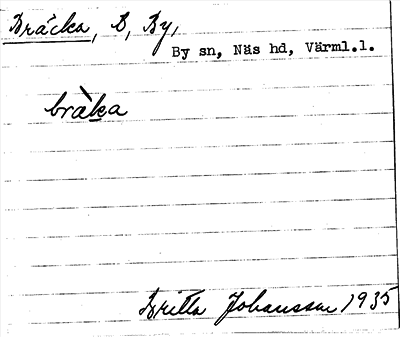 Bräcka, B, By,
By sn, Näs hd, Värml.l.
bràka
Britta Johansson 1935